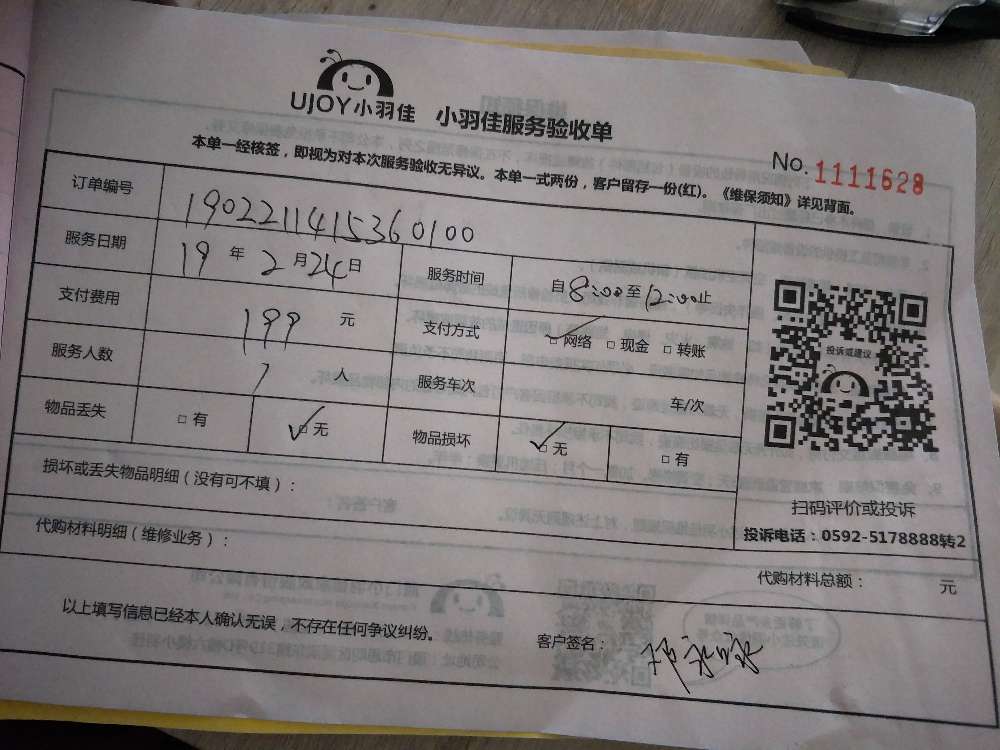 UJOY小羽佳 小羽佳服务验收单
No. 1111628
本单一经核签，即视为对本次服务验收无异议。本单一式两份，客户留存一份(红)。《维保须知》详见背面。
订单编号 1902211415360100
服务日期 19 年 2 月 24 日 服务时间 自 8:00 至 12:00 止
支付费用 199 元 支付方式 ☑ 网络 □ 现金 □ 转账
服务人数 1 人 服务车次 车/次
物品丢失 □ 有 ☑ 无 物品损坏 ☑ 无 □ 有
投诉或建议
扫码评价或投诉
投诉电话：0592-5178888转2
损坏或丢失物品明细（没有可不填）：
代购材料明细（维修业务）：
代购材料总额： 元
以上填写信息已经本人确认无误，不存在任何争议纠纷。
客户签名：